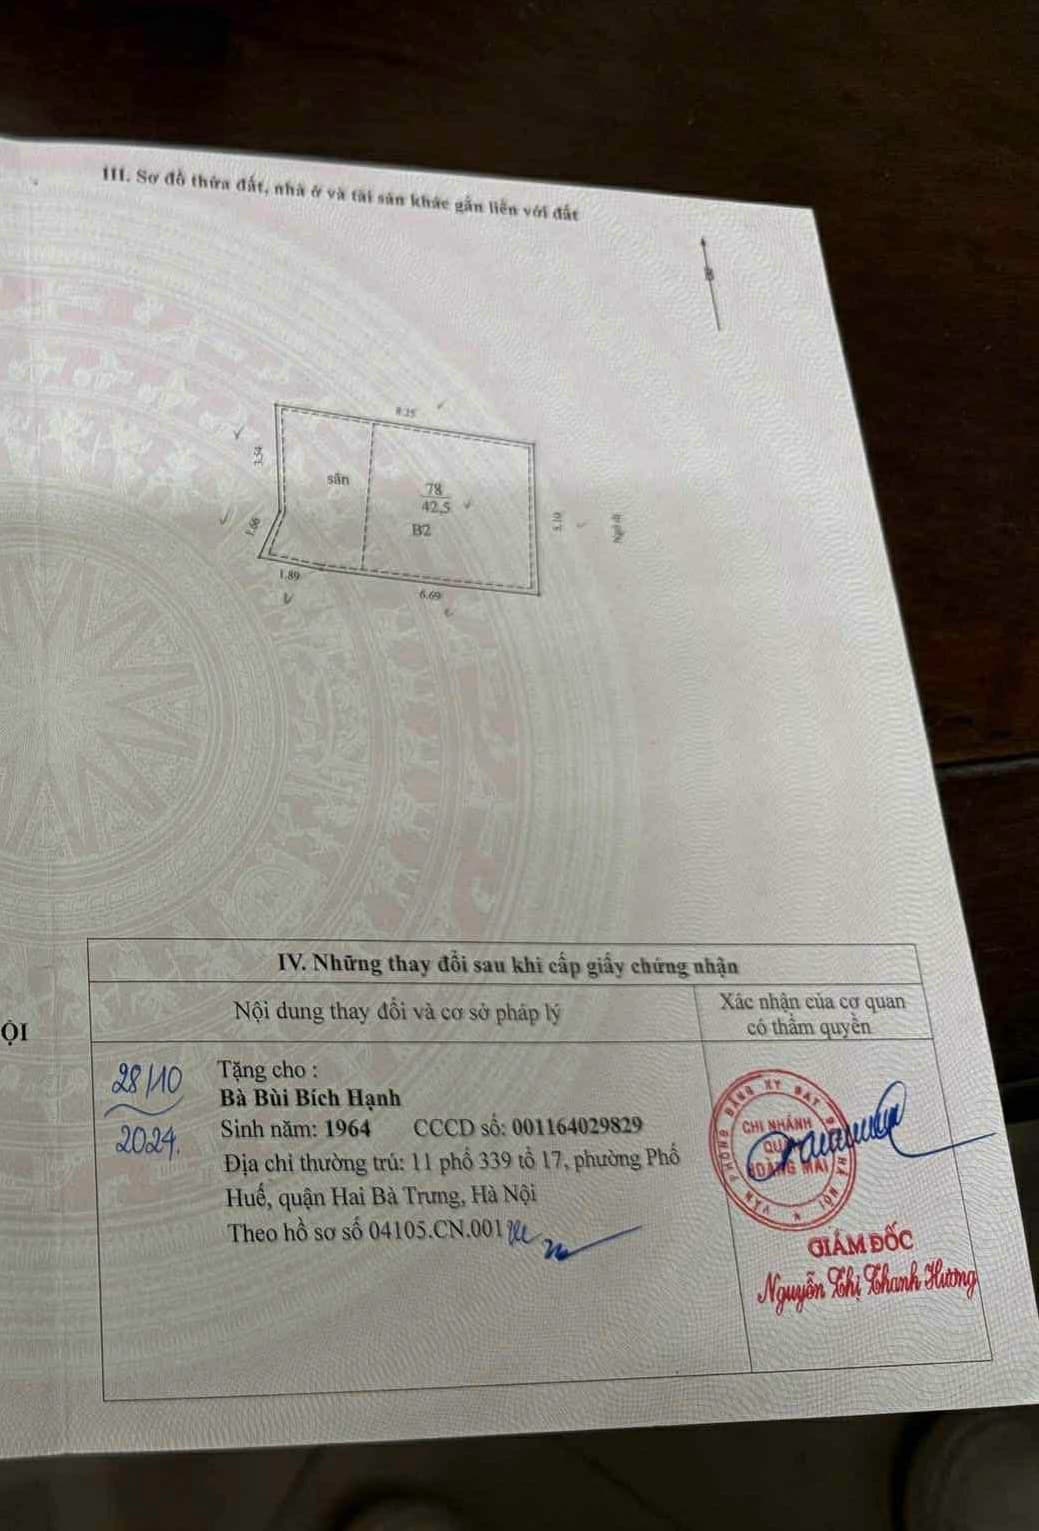 III. Sơ đồ thửa đất, nhà ở và tài sản khác gắn liền với đất
B
8.25
3.54
sân
78
42,5
B2
5.10
Ngõ đi
1.66
1.89
6.69
IV. Những thay đổi sau khi cấp giấy chứng nhận
Nội dung thay đổi và cơ sở pháp lý
Xác nhận của cơ quan
có thẩm quyền
ỘI
28/10
2024.
Tặng cho :
Bà Bùi Bích Hạnh
Sinh năm: 1964 CCCD số: 001164029829
Địa chỉ thường trú: 11 phố 339 tổ 17, phường Phố
Huế, quận Hai Bà Trưng, Hà Nội
Theo hồ sơ số 04105.CN.001
VĂN PHÒNG ĐĂNG KÝ ĐẤT ĐAI HÀ NỘI
CHI NHÁNH
QUẬN
HOÀNG MAI
GIÁM ĐỐC
Nguyễn Thị Thanh Hương